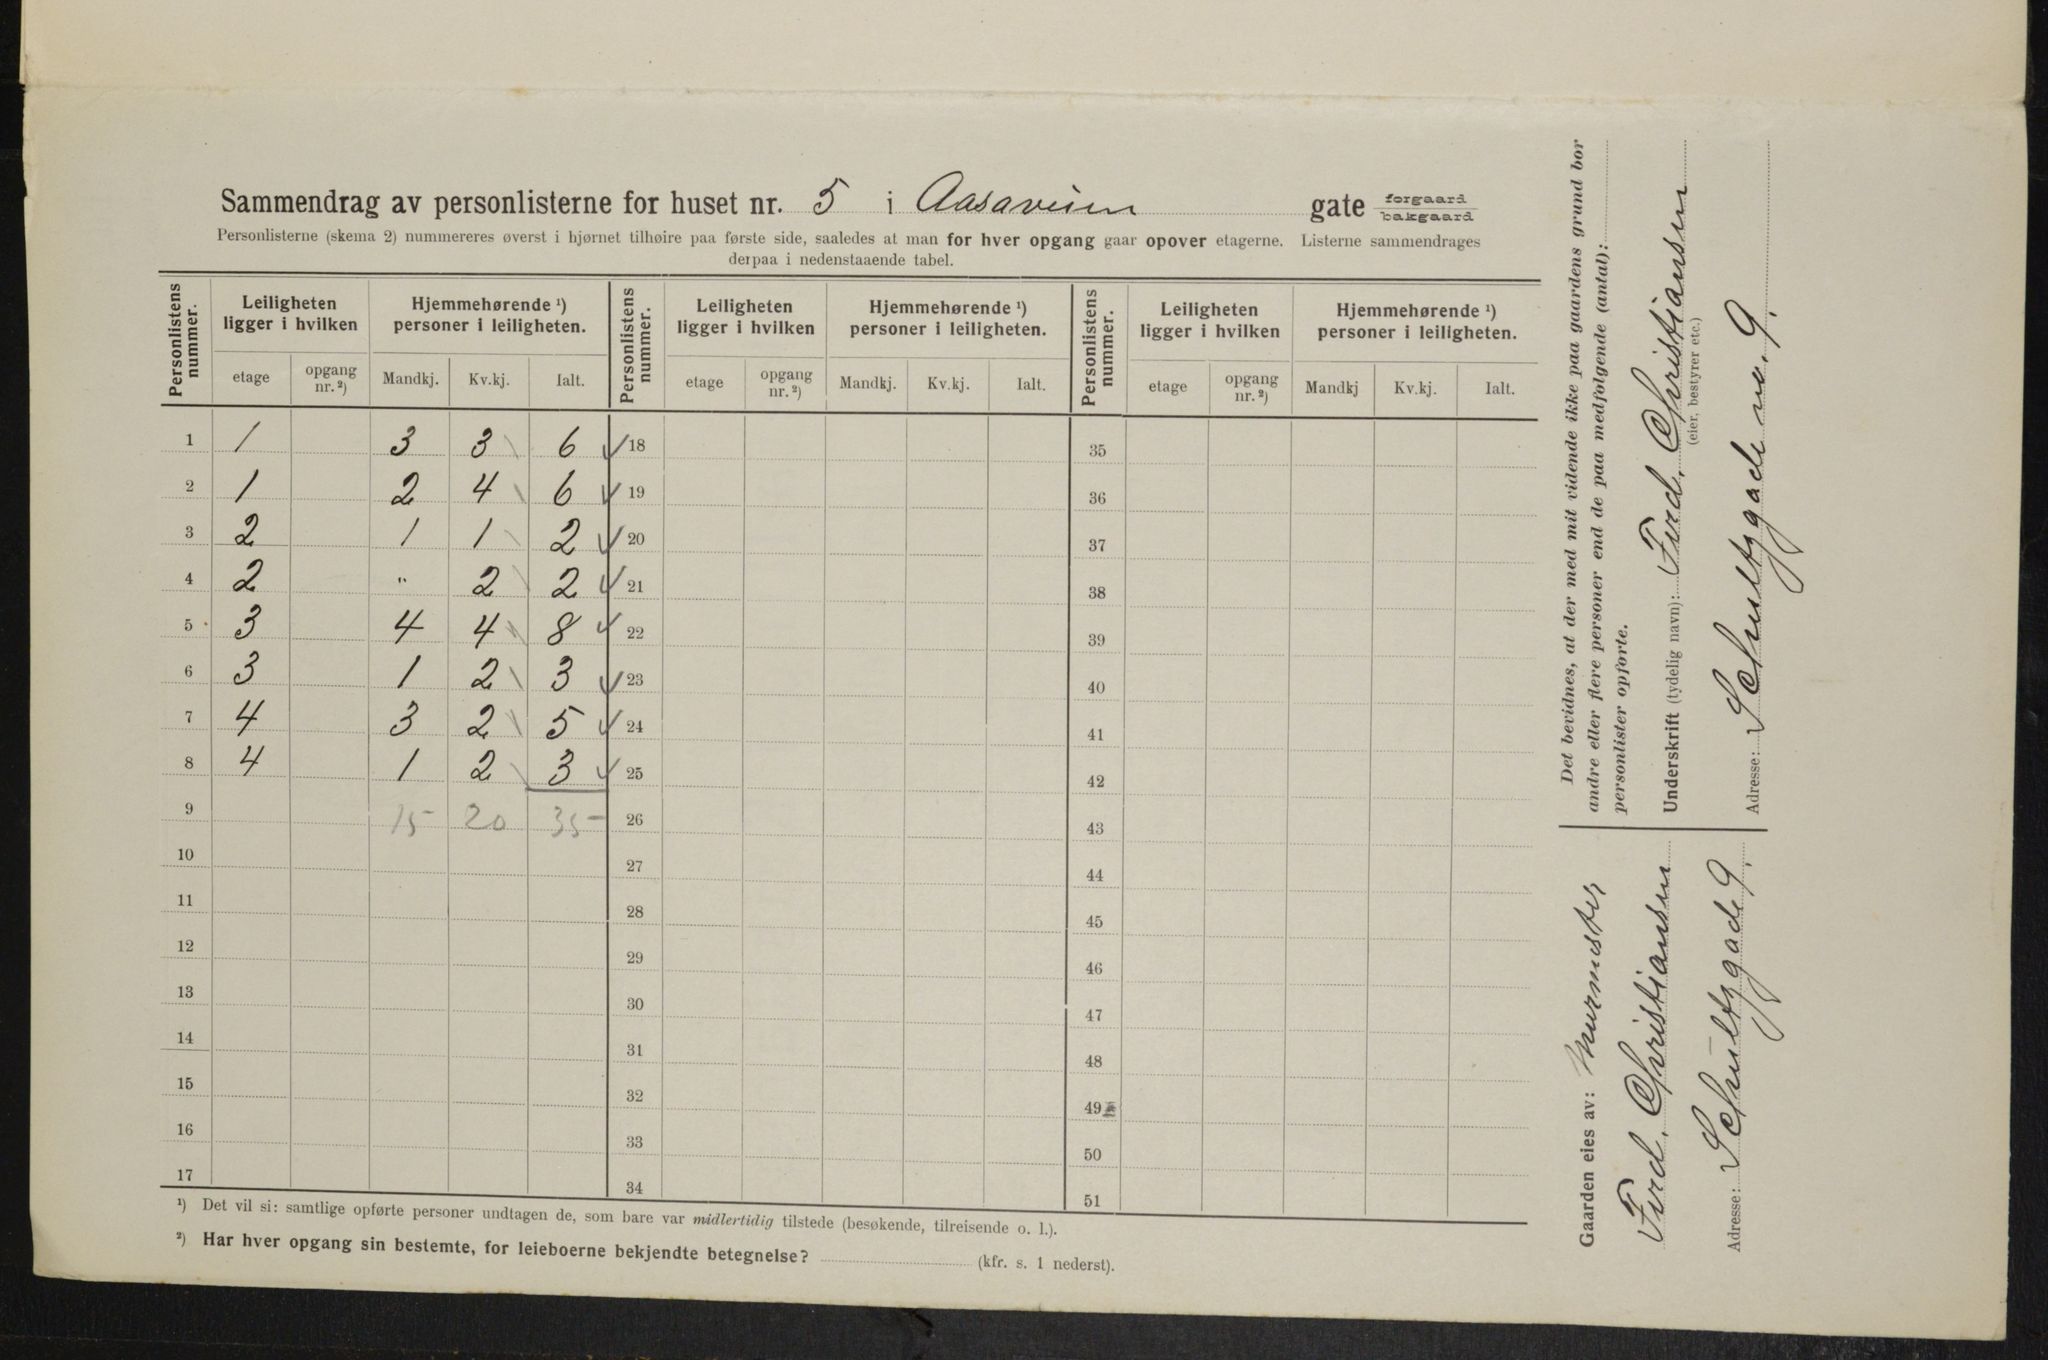 Sammendrag av personlisterne for huset nr. 5 i Aasaveien gate forgaard bakgaard
Personlisterne (skema 2) nummereres øverst i hjørnet tilhøire paa første side, saaledes at man for hver opgang gaar opover etagerne. Listerne sammendrages
derpaa i nedenstaaende tabel.
Personlistens nummer. Leiligheten ligger i hvilken Hjemmehørende ¹) personer i leiligheten. Personlistens nummer. Leiligheten ligger i hvilken Hjemmehørende ¹) personer i leiligheten. Personlistens nummer. Leiligheten ligger i hvilken Hjemmehørende ¹) personer i leiligheten.
etage opgang nr. ²) Mandkj. Kv.kj. Ialt. etage opgang nr. ²) Mandkj. Kv.kj. Ialt. etage opgang nr. ²) Mandkj Kv.kj. Ialt.
1 1 3 3 6 ✓ 18 35
2 1 2 4 6 ✓ 19 36
3 2 1 1 2 ✓ 20 37
4 2 " 2 2 ✓ 21 38
5 3 4 4 8 ✓ 22 39
6 3 1 2 3 ✓ 23 40
7 4 3 2 5 ✓ 24 41
8 4 1 2 3 ✓ 25 42
9 15 20 35 26 43
10 27 44
11 28 45
12 29 46
13 30 47
14 31 48
15 32 49
16 33 50
17 34 51
¹) Det vil si: samtlige opførte personer undtagen de, som bare var midlertidig tilstede (besøkende, tilreisende o. l.).
²) Har hver opgang sin bestemte, for leieboerne bekjendte betegnelse? (kfr. s. 1 nederst).
Det bevidnes, at der med mit vidende ikke paa gaardens grund bor
andre eller flere personer end de paa medfølgende (antal):
personlister opførte.
Underskrift (tydelig navn): Ferd. Christiansen
(eier, bestyrer etc.)
Adresse: Schultzgade no. 9.
Gaarden eies av: Murmester
Ferd. Christiansen
Adresse: Schultzgade 9.